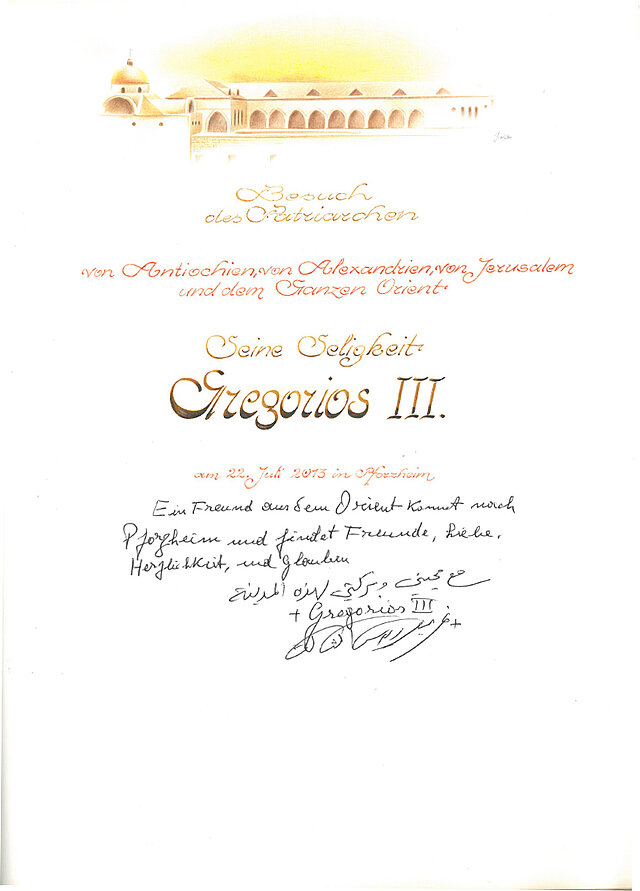 Besuch
des Patriarchen
von Antiochien, von Alexandrien, von Jerusalem
und dem Ganzen Orient
Seine Seligkeit
Gregorios III.
am 22. Juli 2013 in Pforzheim
Ein Freund aus dem Orient kommt nach
Pforzheim und findet Freunde, Liebe,
Herzlichkeit, und Glauben
مع محبتي وبركتي لهذه المدينة
+ Gregorios III